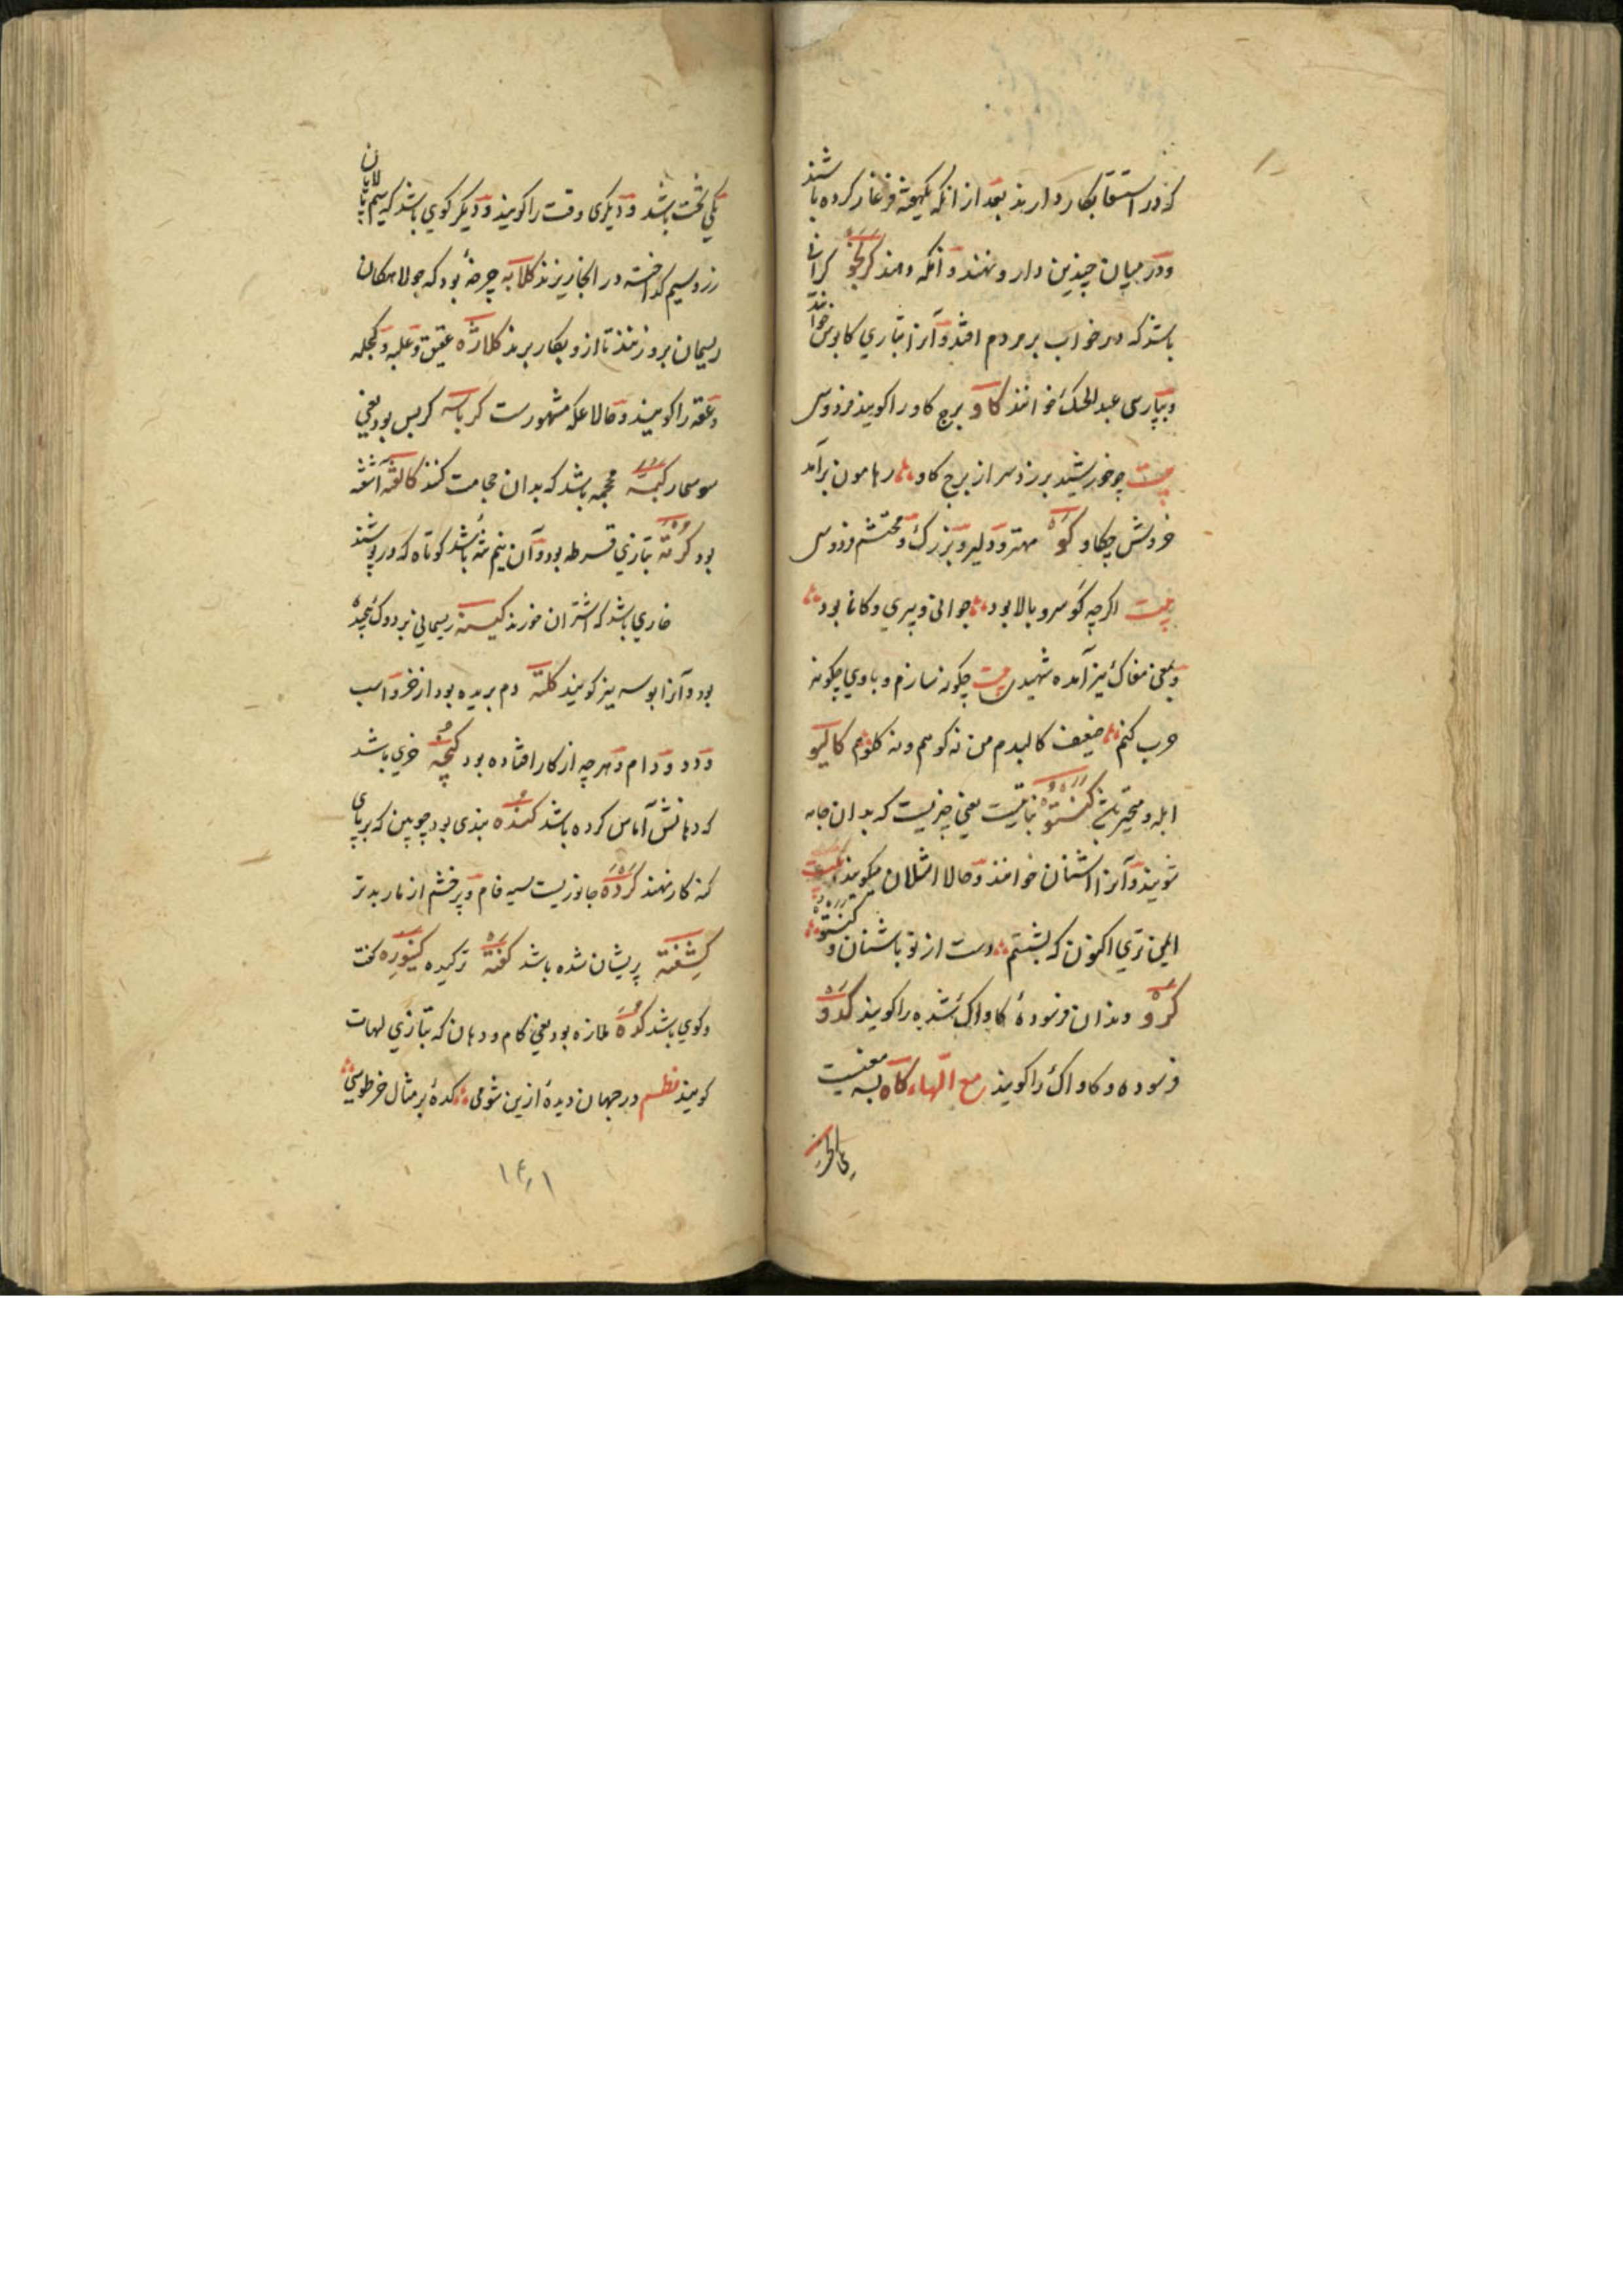 که در استسقا بکار دارند بعد از انکه یکهفته فرغار کرده باشند
و در میان چندین دارو نهند و انکه دهند کرنجو کرانی
باشد که در خواب بر مردم افتد و آنرا بتازی کابوس خوانند
و بپارسی عبدالجنک خوانند کاو برج کاو را کویند فردوسی
بیت چو خورشید برزد سر از برج کاو ز هامون برآمد
خروش چکاو کَوْ مهتر و دلیر و بزرک و محتشم فردوسی
بیت اکرچه کو سرو بالا بود جوانی و پیری و کانا بود
و بمعنی مغاک نیز آمده شهیدی بیت چکونه سازم و با وی چکونه
حرب کنم ضعیف کالبدم من نه کوهم و نه کلوم کالیو
ابله و متحیر کنستو نباتیست یعنی چیزیست که بدان جامه
شویند و آنرا اشنان خوانند و حالا اشلان میکویند بیت
اکنون که بشستم دست از تو باشنان و کنستو
کرو دندان فرسودهٔ کاواک شده را کویند کدو
فرسوده و کاواک را کویند مع الهاء کاه بسه معنیست
یکی تخت باشد و دیکری وقت را کویند و دیکر کوی باشد که سیم پالایان
زر و سیم کداخته در انجا ریزند کلابه چرخهٔ بود که جولاهکان
ریسمان برو زنند تا ازو بکار برند کلاژه عقیق و غلبه و کجله
و عقعه را کویند و حالا عکه مشهورست کرباسه کربس بود یعنی
سوسمار کبه محجمه باشد که بدان حجامت کنند کالفته آشفته
بود کرته بتازی قرطه بود و آن نیم تنه باشد کوتاه که در پوشند
خاری باشد که اشتران خورند کیسنه ریسمانی بر دوک پیچیده
بود و آنرا بوسه نیز کویند کلته دم بریده بود از خر و اسب
و دد و دام و هر چه از کار افتاده بود کپچه خری باشد
که دهانش آماس کرده باشد کنده بندی بود چوبین که بر پای
کنه کار نهند کرده جانوریست سیه فام و پر خشم از مار بدتر
کشفته پریشان شده باشد کفته ترکیده کنوره تخت
و کوی باشد کده ملازه بود یعنی کام و دهان که بتازی لهات
کویند نظم در جهان دیدهٔ ازین شومی کدهٔ بر مثال خرطومی
۱۴۱